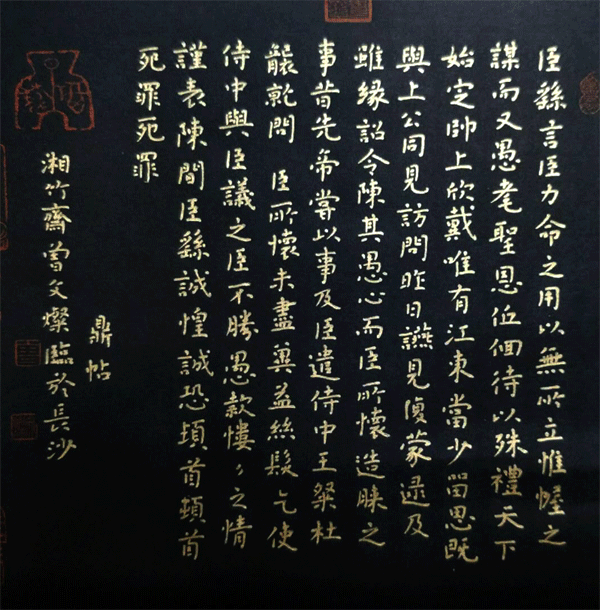 臣繇言臣力命之用以無所立惟幄之
謀而又愚耄聖恩伍佪待以殊禮天下
始定帥上欣戴唯有江東當少留思既
與上公同見訪問昨日讌見復蒙逮及
雖緣詔令陳其愚心而臣所懷造膝之
事昔先帝嘗以事及臣遣侍中王粲杜
襲就問 臣所懷未盡冀益絲髮乞使
侍中與臣議之臣不勝愚款慺々之情
謹表陳聞臣繇誠惶誠恐頓首頓首
死罪死罪
鼎帖
湘竹齋曾文燦臨於長沙